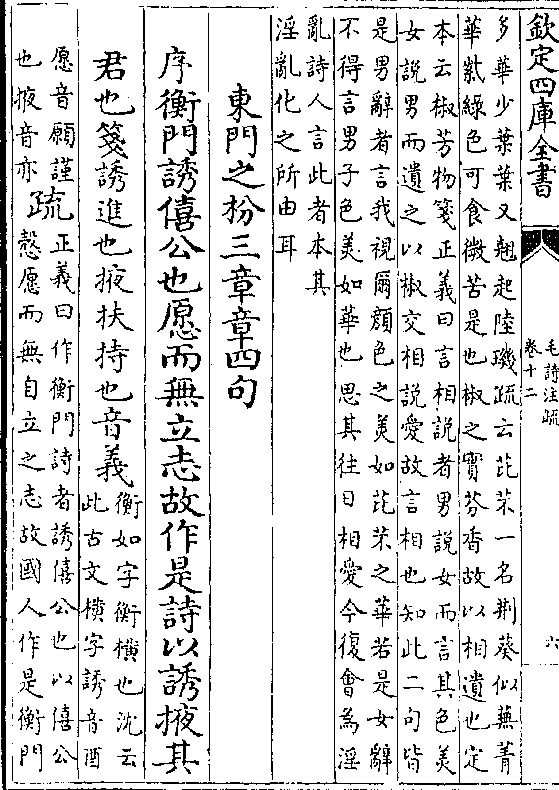 欽定四庫全書
毛詩注疏
卷十二
六
多華少葉葉又翹起陸璣疏云芘芣一名荆葵似蕪菁
華紫綠色可食微苦是也椒之實芬香故以相遺也定
本云椒芳物箋正義曰言相說者男說女而言其色美
女說男而遺之以椒交相說愛故言相也知此二句皆
是男辭者言我視爾顔色之美如芘芣之華若是女辭
不得言男子色美如華也思其往日相愛今復會為淫
亂詩人言此者本其
淫亂化之所由耳
東門之枌三章章四句
序衡門誘僖公也愿而無立志故作是詩以誘掖其
君也箋誘進也掖扶持也音義
衡如字衡橫也沈云
此古文橫字誘音酉
愿音願謹
也掖音亦
疏
正義曰作衡門詩者誘僖公也以僖公
慤愿而無自立之志故國人作是衡門